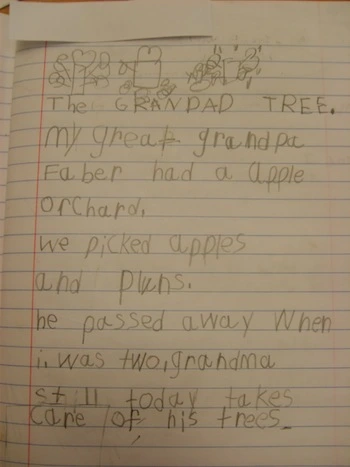 The GRANDAD TREE.
my great grandpa
Faber had a apple
orchard.
we picked apples
and pluns.
he passed away When
i was two, grandma
still today takes
care of his trees.